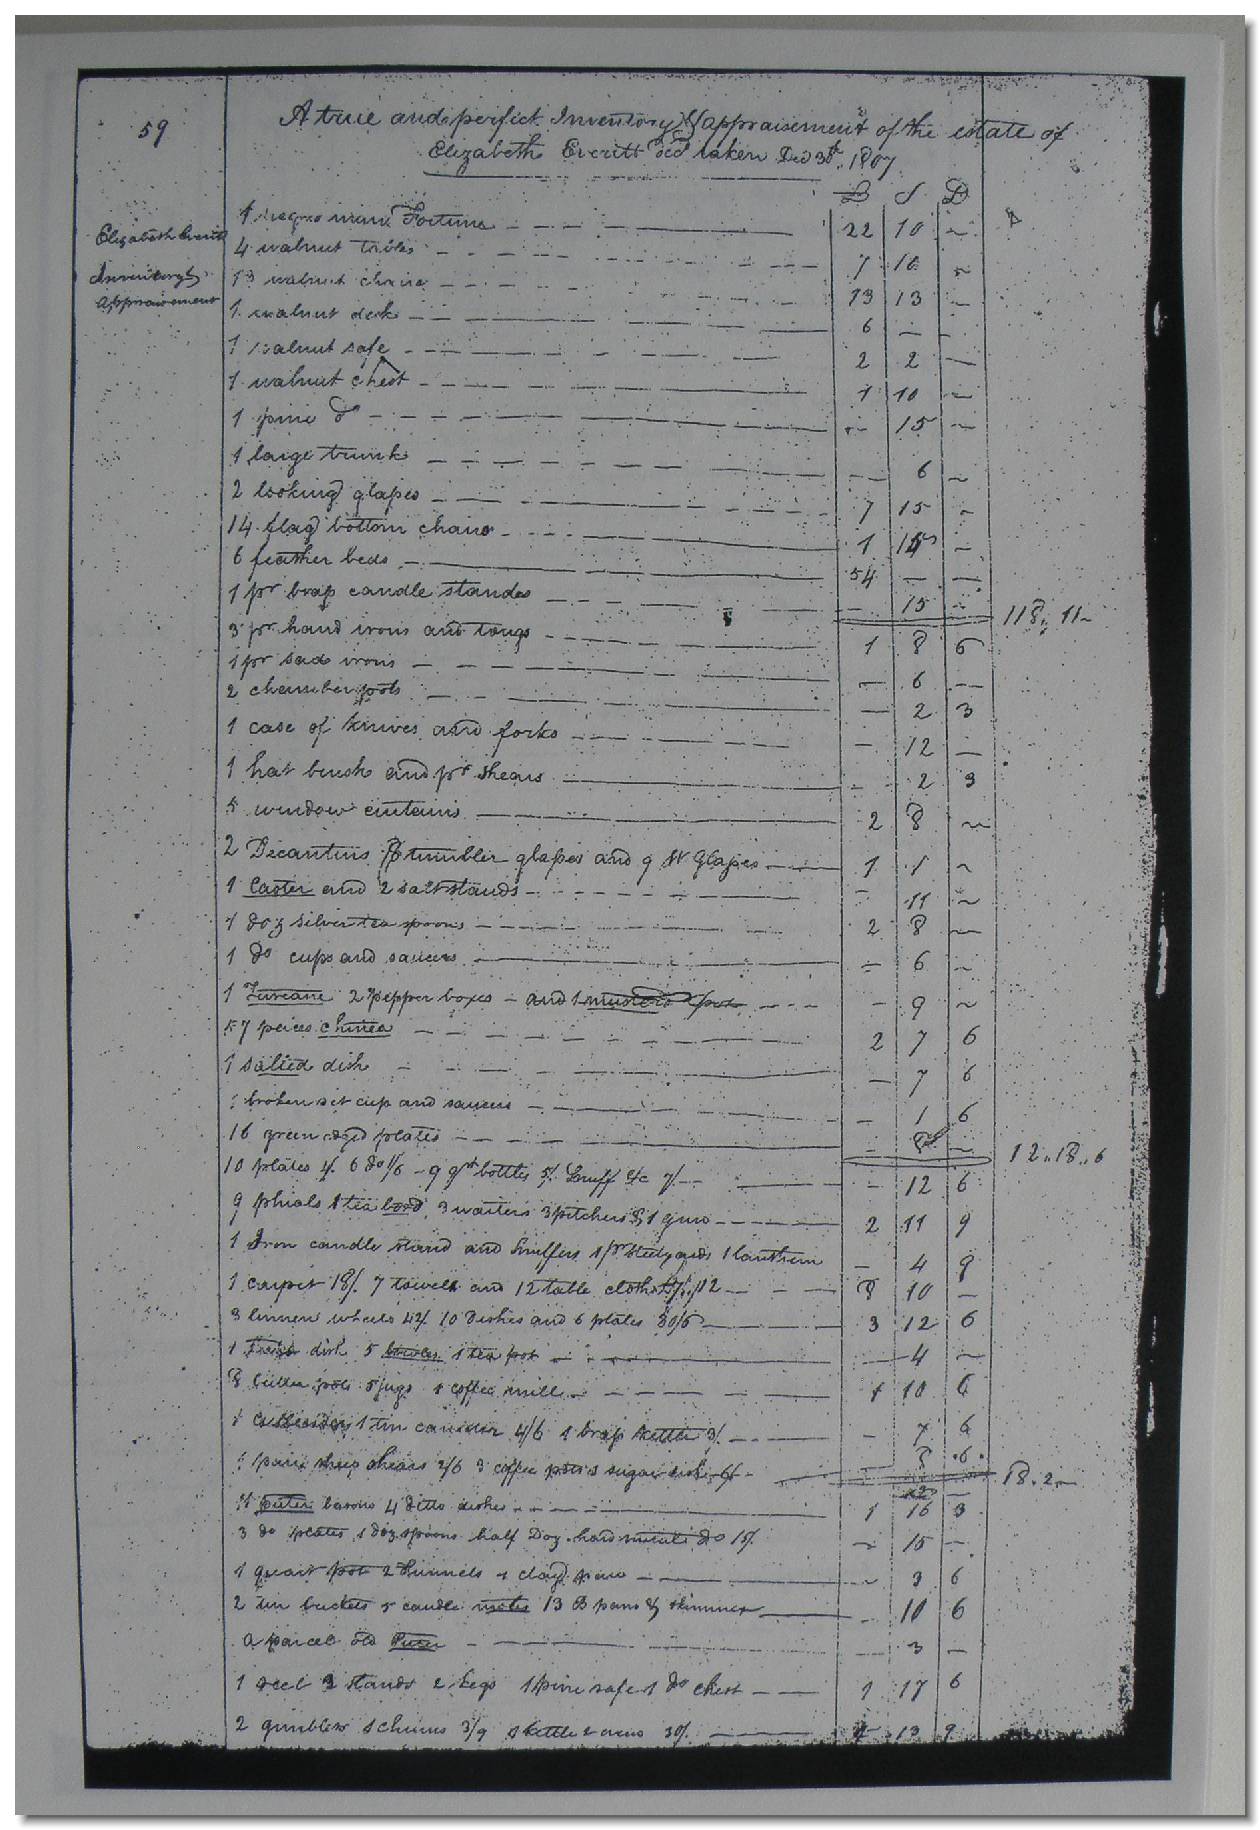 59
A true and perfick Inventory & appraisement of the estate of
Elizabeth Everitt decd taken Decr 30th 1807
£ S D
Elizabeth Everitt
Inventory &
Appraisement
1 negro man Fortune 22 10 ~
4 walnut tables 7 16 ~
13 walnut chairs 13 13 ~
1 walnut desk 6 — —
1 walnut safe 2 2 —
1 walnut chest 1 10 ~
1 pine do ~ 15 ~
1 large trunk — 6 ~
2 looking glasses 7 15 ~
14 flag bottom chairs 1 15 ~
6 feather beds 54 — —
1 pr brass candle standes — 15 — 118.. 11~
3 pr hand irons and tongs 1 8 6
1 pr sad irons — 6 —
2 chamber pots — 2 3
1 case of knives and forks — 12 —
1 hat brush and pr shears — 2 3
5 window curtains 2 8 ~
2 Decanters 8 tumbler glasses and 9 W Glasses 1 1 ~
1 Caster and 2 salt stands — 11 ~
1 doz silver tea spoons 2 8 ~
1 do cups and saucers — 6 ~
1 Tureane 2 pepper boxes and 1 musterd pot — 9 ~
57 peices chinea 2 7 6
1 salled dish — 7 6
1 broken set cup and saucers — 1 6
16 green edged plates — 8 ~ 12..18..6
10 plates 4/. 6 do 1/6 - 9 qrt bottles 5/. Snuff &c 7/- — 12 6
9 phials 1 tea bord 3 waiters 3 pitchers & 1 2 11 9
1 Iron candle stand and Snuffers 1 pr Steelyards 1 lanthern — 4 9
1 carpet 18/. 7 towels and 12 table cloths 8 10 —
3 linnen wheels 42/. 10 dishes and 6 plates 30/6 3 12 6
1 dish 5 bowles 1 tea pot — 4 ~
8 butter pots 5 jugs 1 coffee mill 1 10 6
1 1 tin canister 4/6 1 brass kettle 3/. — 7 6
1 paire sheep shears 2/6 3 coffee pots 1 sugar dish 6/- — 8 6 18..2..—
puter basons 4 ditto dishes 1 16 3
3 do plates 1 doz spoons half Doz hard mettle do 15/. ~ 15 —
1 quart pot 2 funnels 1 clay ~ 3 6
2 tin buckets 5 candle moles 13 B pans & skimmer — 10 6
a parcel old Puter — 3 —
1 reel 3 stands 2 kegs 1 pine safe 1 do chest 1 17 6
2 1 churns 3/9 1 kettle 2 30/. 13 9